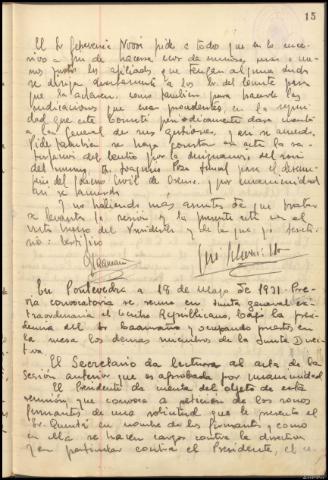 15
El Sr. Echeverria Novoa pide a todos que en lo suce-
sivo a fin de hacerse eco de
nos justos los afiliados que tengan alguna duda
se dirijan directamente a los Sres. del Comité para
que la aclaren como también para hacerle las
indicaciones que crea procedentes, en la seguri-
dad que este Comité periódicamente dará cuenta
a la General de sus gestiones, y así se acuerda.
Pide también se haga constar en acta la sa-
tisfacción del Centro por la designación del socio
del mismo D. Joaquin Poza para el desem-
peño del Gobierno Civil de Orense, y por unanimidad
se acuerda
Y no habiendo más asuntos de que tratar
se levanta la sesión y la presente acta con el
visto bueno del Presidente y de lo que yo Secreta-
rio: certifico
Caamaño
En Pontevedra a 18 de Mayo de 1931. Pre-
via convocatoria se reune en Junta general ex-
traordinaria el Centro Republicano, bajo la presi-
dencia del Sr. Caamaño y ocupando puestos en
la mesa los demas miembros de la Junta Direc-
tiva.
El Secretario da lectura al acta de la
sesión anterior que es aprobada por unanimidad
El Presidente da cuenta del objeto de esta
reunión, que convoca a petición de los socios
firmantes de una solicitud que le presenta el
Sr. Quintá en nombre de los firmantes y como
en ella se hacen cargos contra la directiva
y en particular contra el Presidente, el